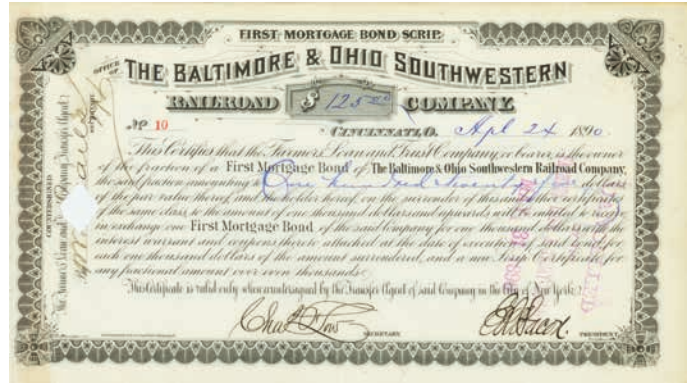 FIRST MORTGAGE BOND SCRIP.
OFFICE OF
THE BALTIMORE & OHIO SOUTHWESTERN
RAILROAD $ 125.00 COMPANY.
No 10
CINCINNATI, O. Apl 24 1890
This Certifies that the Farmers Loan and Trust Company, or bearer, is the owner
of the fraction of a First Mortgage Bond of The Baltimore & Ohio Southwestern Railroad Company,
the said fraction amounting to One hundred twenty five dollars
of the par value thereof, and the holder hereof, on the surrender of this and other certificates
of the same class, to the amount of one thousand dollars and upwards will be entitled to
in exchange one First Mortgage Bond of the said Company for one thousand dollars with the
interest warrant and coupons thereto attached at the date of execution of said bond, for
each one thousand dollars of the amount surrendered, and a new Scrip Certificate for
any fractional amount over even thousands.
This Certificate is valid only when countersigned by the Transfer Agent of said Company in the City of New York.
SECRETARY.
PRESIDENT.
COUNTERSIGNED
The Farmers Loan and Trust Company, Transfer Agent,